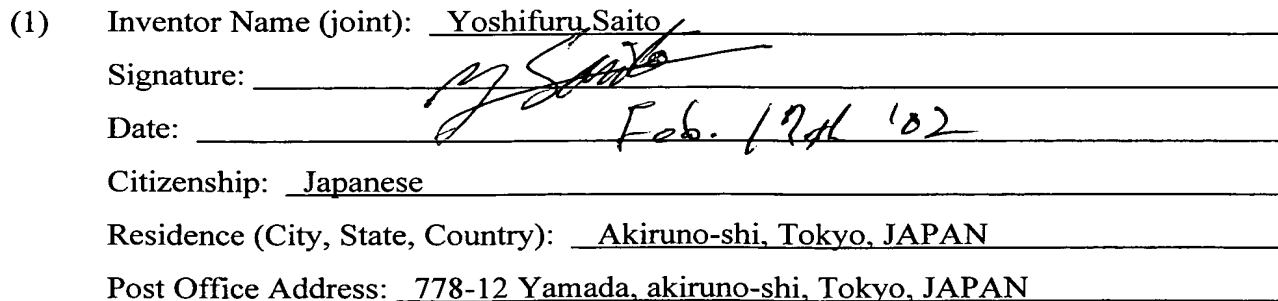 (1) Inventor Name (joint): Yoshifuru Saito
Signature: Y Saito
Date: Feb. 17th '02
Citizenship: Japanese
Residence (City, State, Country): Akiruno-shi, Tokyo, JAPAN
Post Office Address: 778-12 Yamada, akiruno-shi, Tokyo, JAPAN